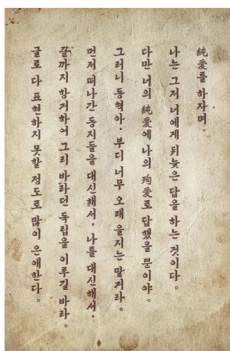 純愛를 하자며.
나는 그저 너에게 뒤늦은 답을 하는 것이다.
다만 너의 純愛에 나의 殉愛로 답했을 뿐이야.
그러니 동혁아. 부디 너무 오래 울지는 말거라.
먼저 떠나간 동지들을 대신해서, 나를 대신해서,
끝까지 항거하여 그리 바라던 독립을 이루길 바라.
글로 다 표현하지 못할 정도로 많이 은애한다.